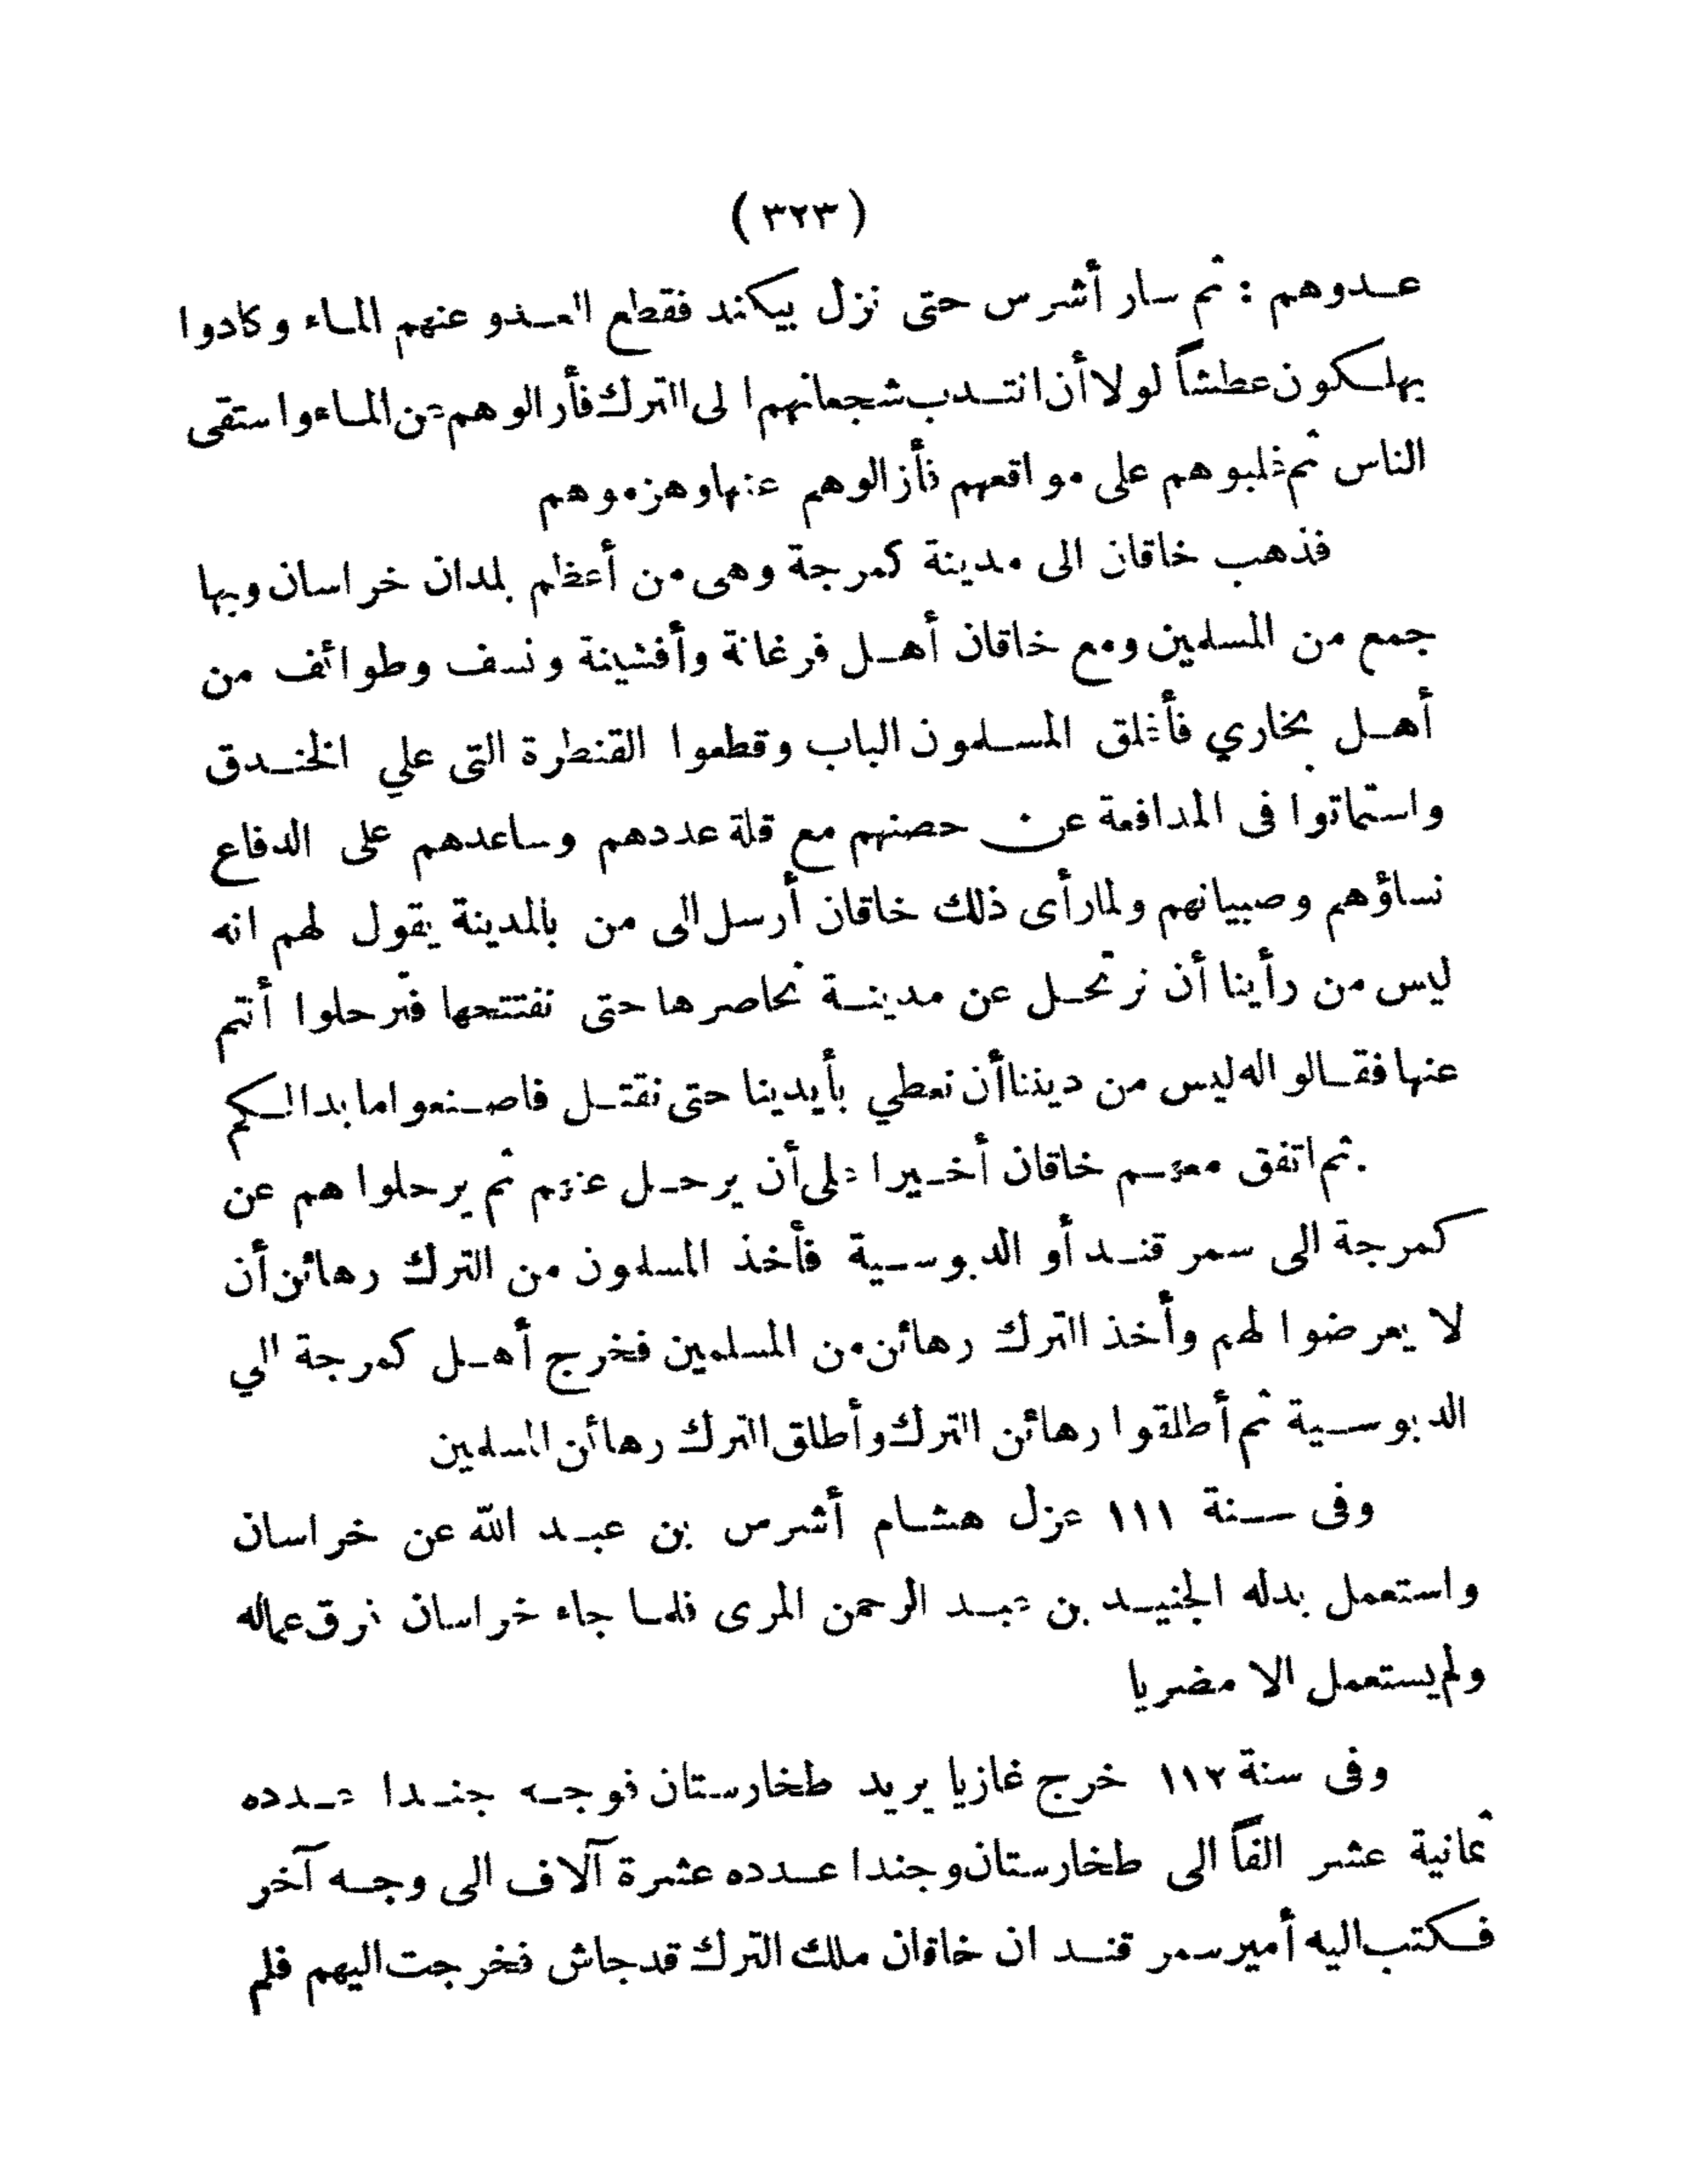 (٣٢٣)
عدوهم : ثم سار أشرس حتى نزل بيكند فقطع العدو عنهم الماء وكادوا
يهلكون عطشاً لولا أن انتدب شجعانهم الى الترك فأرالوهم عن الماء واستقى
الناس ثم غلبوهم على مواقعهم فأزالوهم عنها وهزموهم
فذهب خاقان الى مدينة كمرجة وهى من أعظم بلدان خراسان وبها
جمع من المسلمين ومع خاقان أهل فرغانة وأفشينة ونسف وطوائف من
أهل بخاري فأغلق المسلمون الباب وقطعوا القنطرة التى علي الخندق
واستماتوا فى المدافعة عن حصنهم مع قلة عددهم وساعدهم على الدفاع
نساؤهم وصبيانهم ولما رأى ذلك خاقان أرسل الى من بالمدينة يقول لهم انه
ليس من رأينا أن نرتحل عن مدينة نحاصرها حتى نفتتحها فترحلوا أنتم
عنها فقالوا له ليس من ديننا أن نعطي بأيدينا حتى نقتل فاصنعوا ما بدا لكم
ثم اتفق معهم خاقان أخيرا على أن يرحل عنهم ثم يرحلوا هم عن
كمرجة الى سمرقند أو الدبوسية فأخذ المسلمون من الترك رهائن أن
لا يعرضوا لهم وأخذ الترك رهائن من المسلمين فخرج أهل كمرجة الي
الدبوسية ثم أطلقوا رهائن الترك وأطلق الترك رهائن المسلمين
وفى سنة ١١١ عزل هشام أشرس بن عبد الله عن خراسان
واستعمل بدله الجنيد بن عبد الرحمن المرى فلما جاء خراسان فرق عماله
ولم يستعمل الا مضريا
وفى سنة ١١٢ خرج غازيا يريد طخارستان فوجه جندا عدده
ثمانية عشر الفاً الى طخارستان وجندا عدده عشرة آلاف الى وجه آخر
فكتب اليه أمير سمرقند ان خاقان ملك الترك قد جاش فخرجت اليهم فلم